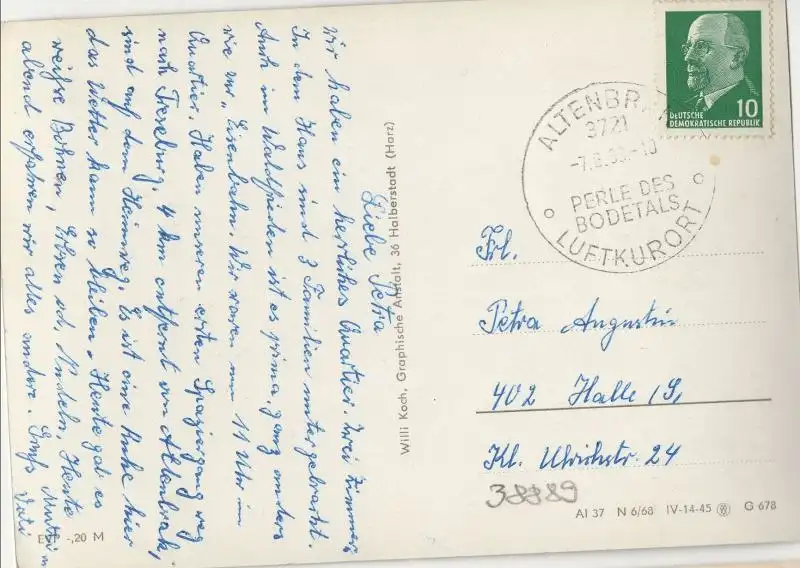 Liebe Petra
Wir haben ein herrliches Quartier. Zwei Zimmer.
In dem Haus sind 3 Familien untergebracht.
Auch im Waldfrieden ist es prima, ganz anders
wie zur "Eisenbahn. Wir waren um 11 Uhr im
Quartier. Haben unseren ersten Spaziergang weg
nach Treseburg 4 km entfernt von Altenbrak,
sind auf dem Heimweg. Es ist eine Ruhe hier
das Wetter kann so bleiben. Heute gab es
weiße Bohnen, Erbsen od. Nudeln. Heute
abend erfahren wir alles andere. Gruß Mutti u
Vati
EVP -,20 M
Willi Koch, Graphische Anstalt, 36 Halberstadt (Harz)
10
DEUTSCHE
DEMOKRATISCHE REPUBLIK
3721
PERLE DES
BODETALS
LUFTKURORT
Frl.
Petra Augustin
402 Halle /S,
Kl. Ulrichstr. 24
38889
AI 37 N 6/68 IV-14-45 G 678